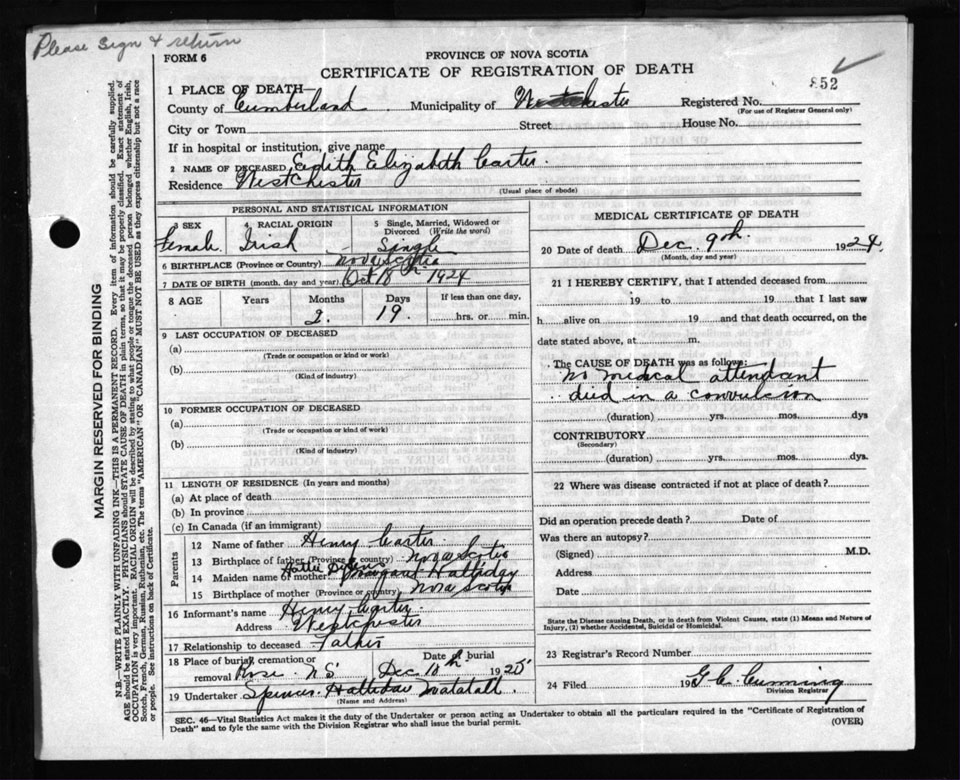 Please sign & return
FORM 6
PROVINCE OF NOVA SCOTIA
CERTIFICATE OF REGISTRATION OF DEATH
852
1 PLACE OF DEATH—
County of Cumberland Municipality of Westchester Registered No.
(For use of Registrar General only)
City or Town Street House No.
If in hospital or institution, give name
2 NAME OF DECEASED Edith Elizabeth Carter
Residence Westchester
(Usual place of abode)
PERSONAL AND STATISTICAL INFORMATION
3 SEX 4 RACIAL ORIGIN 5 Single, Married, Widowed or Divorced (Write the word)
Female Irish Single
6 BIRTHPLACE (Province or Country) Nova Scotia
7 DATE OF BIRTH (month, day and year) Oct 18th 1924
8 AGE Years Months Days If less than one day,
2 19 hrs. or min.
9 LAST OCCUPATION OF DECEASED
(a)
(Trade or occupation or kind or work)
(b)
(Kind of industry)
10 FORMER OCCUPATION OF DECEASED
(a)
(Trade or occupation or kind of work)
(b)
(Kind of industry)
11 LENGTH OF RESIDENCE (In years and months)
(a) At place of death
(b) In province
(c) In Canada (if an immigrant)
Parents
12 Name of father Henry Carter
13 Birthplace of father (Province or country) Nova Scotia
14 Maiden name of mother Hattie Halliday
15 Birthplace of mother (Province or country) Nova Scotia
16 Informant's name Henry Carter
Address Westchester
17 Relationship to deceased Father
18 Place of burial, cremation or removal Rose N.S. Date of burial Dec 10th 1925
19 Undertaker Spencer Halliday
(Name and Address)
MEDICAL CERTIFICATE OF DEATH
20 Date of death Dec. 9th 1924
(Month, day and year)
21 I HEREBY CERTIFY, that I attended deceased from
19 to 19 that I last saw
h alive on 19 and that death occurred, on the
date stated above, at m.
The CAUSE OF DEATH was as follows:
no medical attendant
died in a convulsion
(duration) yrs. mos. dys
CONTRIBUTORY
(Secondary)
(duration) yrs. mos. dys.
22 Where was disease contracted if not at place of death?
Did an operation precede death? Date of
Was there an autopsy?
(Signed) M.D.
Address
Date
State the Disease causing Death, or in death from Violent Causes, state (1) Means and Nature of
Injury, (2) whether Accidental, Suicidal or Homicidal.
23 Registrar's Record Number
24 Filed 19 G. C. Cumming
Division Registrar
SEC. 46—Vital Statistics Act makes it the duty of the Undertaker or person acting as Undertaker to obtain all the particulars required in the "Certificate of Registration of
Death" and to fyle the same with the Division Registrar who shall issue the burial permit.
(OVER)
MARGIN RESERVED FOR BINDING
N.B.—WRITE PLAINLY WITH UNFADING INK—THIS IS A PERMANENT RECORD. Every item of information should be carefully supplied.
AGE should be stated EXACTLY. PHYSICIANS should STATE CAUSE OF DEATH in plain terms, so that it may be properly classified. Exact statement of
OCCUPATION is very important. RACIAL ORIGIN will be described by stating to what people or tongue the deceased person belonged whether English, Irish,
Scotch, French, German, Russian, Ruthenian, etc. The terms "AMERICAN" OR "CANADIAN" MUST NOT BE USED as they express citizenship but not a race
or people. See instructions on back of Certificate.